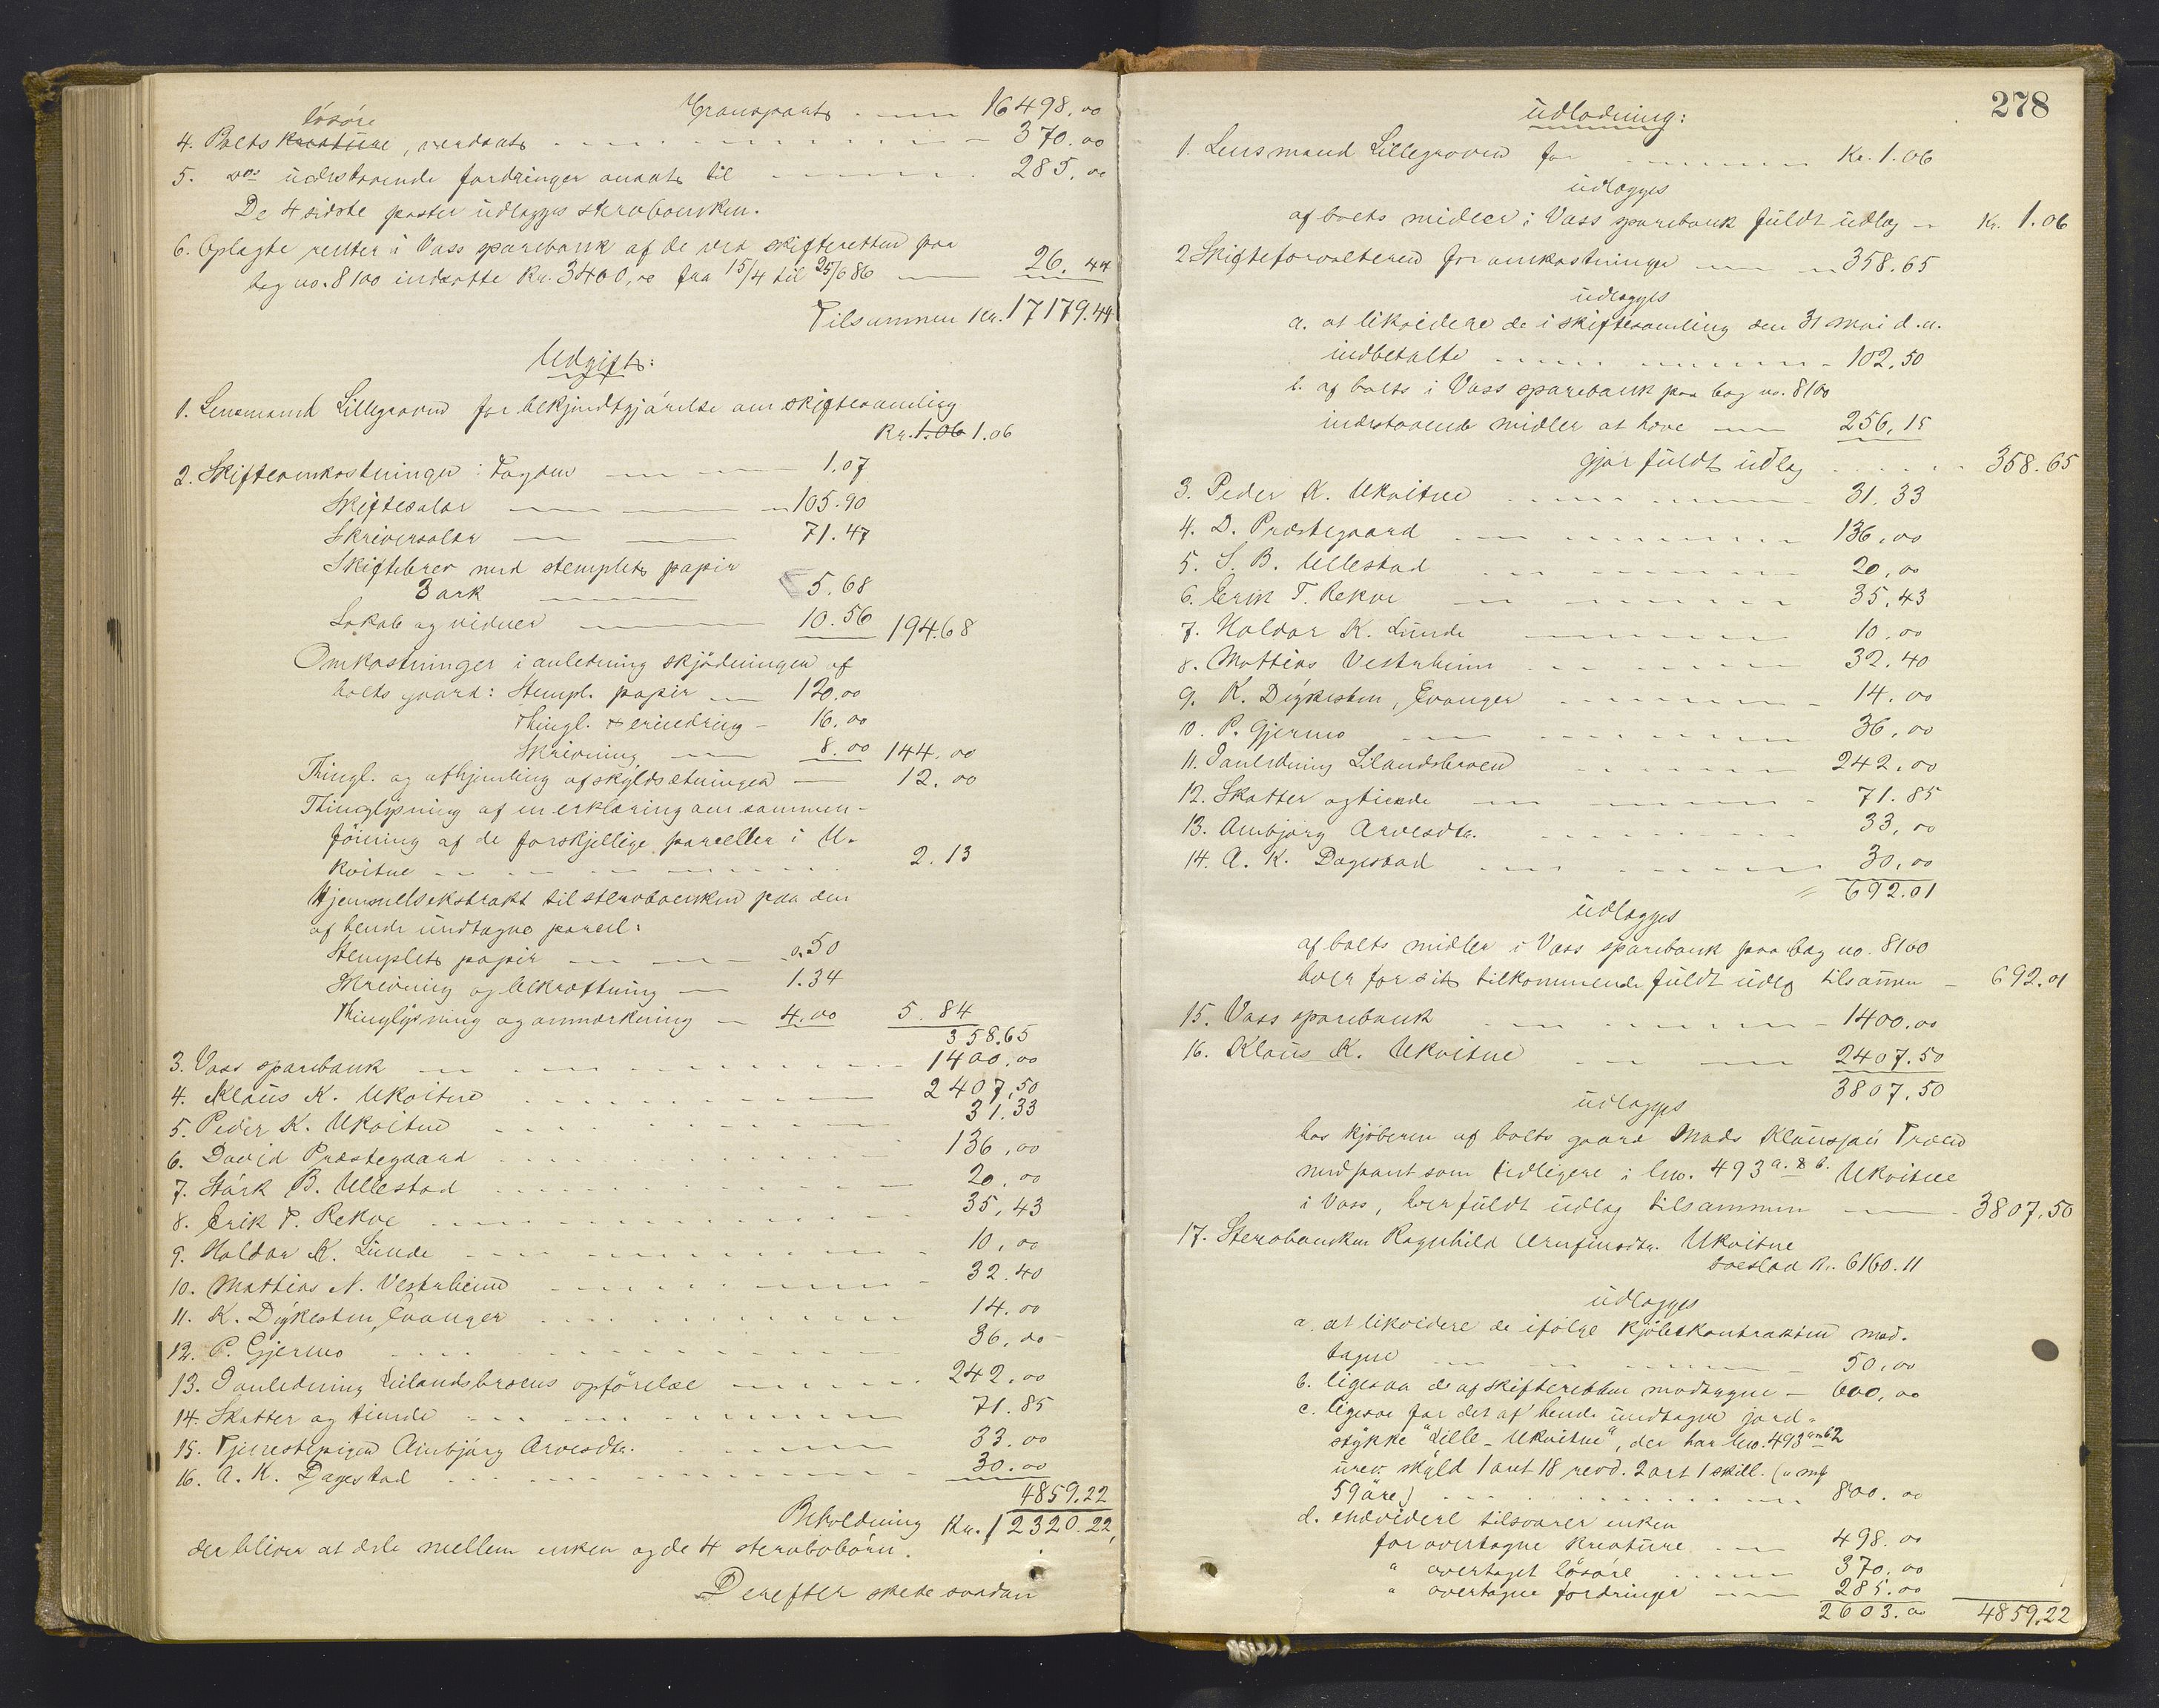 Transport . — 16498.00
løsøre
4. Boets kreature, verdsat - - - 370.00
5. do udestaaende fordringer ansat til - - - 285.00
De 4 sidste poster udlægges sterboenken.
6. Oplagte renter i Voss sparebank af de ved skifteretten paa
bog no. 8100 indsatte Kr. 3400,00 fra 15/4 til 25/6 86 — 26.44
Tilsammen Kr. 17179.44
Udgift:
1. Lensmand Lillegraven for bekjendtgjørelse om skiftesamling
Kr. 1.06 1.06
2. Skifteomkostninger: Fogden — — 1.07
Skiftesalær — — 105.90
Skriversalær — — 71.47
Skiftebrev med stemplet papir
3 ark — 5.68
Lokale og vidner — 10.56 194.68
Omkostninger i anledning skjødningen af
boets gaard: Stempl. papir — 120.00
Thingl. & erindring - 16.00
Skrivning — 8.00 144.00
Thingl. og afhjemling af skyldsætningen — 12.00
Thinglysning af en erklæring om sammen-
føining af de forskjellige parceller i U-
kvitne - - - 2.13
Hjemmelsekstrakt til sterboenken paa den
af hende undtagne parcel:
Stemplet papir — — 0.50
Skrivning og bekræftning — 1.34
Thinglysning og anmærkning — 4.00 5.84
358.65
3. Voss sparebank - - - 1400.00
4. Klaus K. Ukvitne - - - 2407,50
5. Peder K. Ukvitne - - - 31.33
6. David Prestegaard - - - 136,00
7. Stark B. Ullestad - - - 20,00
8. Erik T. Rekve - - - 35,43
9. Haldor K. Lunde - - - 10,00
10. Mathias N. Vestrheim - - - 32.40
11. K. Dykesten, Evanger - - - 14.00
12. P. Gjermo - - - 36,00
13. I anledning Lilandsbroens opførelse - - - 242.00
14. Skatter og tiende - - - 71.85
15. Tjenestepigen Ambjørg Arvesdtr. - - - 33.00
16. A. K. Dagestad - - - 30.00
4859.22
Beholdning Kr. 12320.22,
der bliver at dele mellem enken og de 4 sterbobørn.
Derefter skede saadan
278
Udlodning:
1. Lensmand Lillegraven for - - - Kr. 1.06
udlægges
af boets midler i Voss sparebank fuldt udlæg — Kr. 1.06
2 Skifteforvalteren for omkostninger — — 358.65
udlægges
a. at likvidere de i skiftesamling den 31 mai d. a.
indbetalte - - - 102,50
b. af boets i Voss sparebank paa bog no. 8100
indestaaende midler at hæve — 256,15
gjør fuldt udlæg - - - 358.65
3. Peder K. Ukvitne - - - 31.33
4. D. Prestegaard - - - 136,00
5. S. B. Ullestad - - - 20,00
6. Erik T. Rekve - - - 35,43
7. Haldor K. Lunde - - - 10,00
8. Mathias Vestrheim - - - 32.40
9. K. Dykesten, Evanger - - - 14.00
10. P. Gjermo - - - 36,00
11. I anledning Lilandsbroen - - - 242,00
12. Skatter og tiende - - - 71.85
13. Ambjørg Arvesdtr. - - - 33,00
14. A. K. Dagestad - - - 30,00
692.01
udlægges
af boets midler i Voss sparebank paa bog no. 8100
hver for sit tilkommende fuldt udlæg tilsammen - 692.01
15. Voss sparebank - - - 1400.00
16. Klaus K. Ukvitne - - - 2407.50
3807,50
udlægges
hos kjøberen af boets gaard Mads Klaussøn Træen
med pant som tidligere i lno. 493 a. & b. Ukvitne
i Voss, hver fuldt udlæg tilsammen — 3807,50
17. Sterboenken Ragnhild Arnfinsdtr. Ukvitne
boeslod Kr. 6160.11
udlægges
a. at likvidere de ifølge kjøbekontrakten mod-
tagne - - - 50,00
b. ligesaa de af skifteretten modtagne — 600,00
c. ligesaa for det af hende undtagne jord-
stykke "Lille-Ukvitne", der har lno. 493 a b2
urev. skyld 1 ort 18 revd. 2 ort 1 skill. (u mrk
59 øre) - - - 800.00
d. endvidere tilsvarer enken
for overtagne kreature - - - 498.00
" overtaget løsøre - - - 370,00
" overtagne fordringer — 285.00
2603.00 4859.22